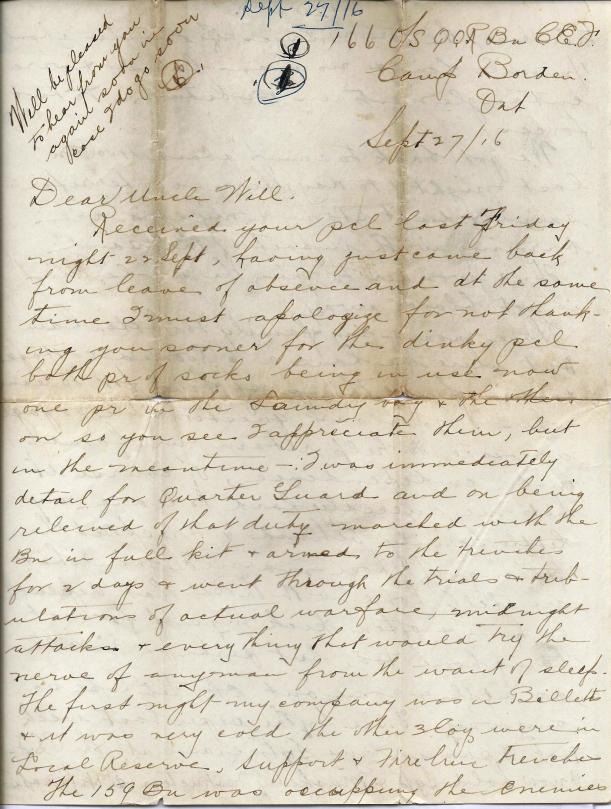 Sept 27/16
Will be pleased
to hear from you
again soon in
case I do go soon
166 O/S Q O R Bn C.E.F.
Camp Borden.
Ont
Sept 27/16
Dear Uncle Will.
Received your pcl last Friday
night 22 Sept, having just come back
from leave of absence and at the same
time I must apologize for not thank-
ing you sooner for the dinky pcl
both pr of socks being in use now
one pr in the Laundry bag & the other
on so you see I appreciate them, but
in the meantime - I was immediately
detail for Quarter Guard and on being
releived of that duty marched with the
Bn in full kit & armed to the trenches
for 2 days & went through the trials & trib-
ulations of actual warfare, midnight
attacks & everything that would try the
nerve of anyman from the want of sleep.
The first night my company was in Billetts
& it was very cold the other 3 Coy were in
Local Reserve, Support & Fireline Trenches
The 159 Bn was occupping the enemies